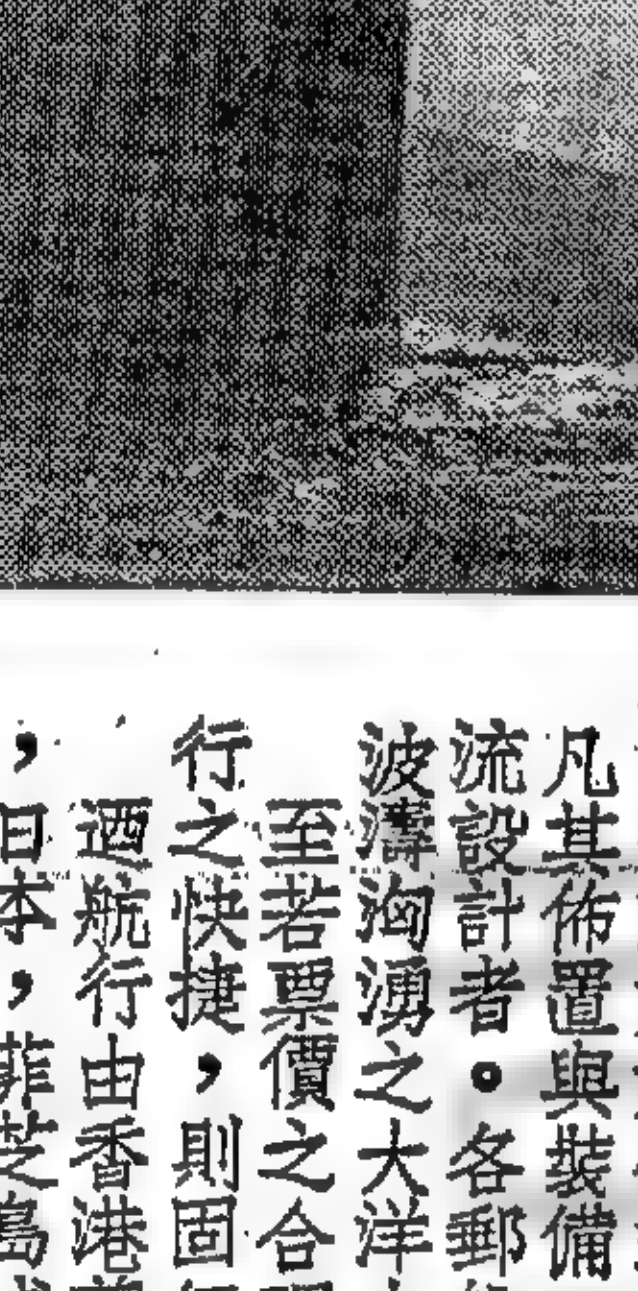 凡其佈置與裝備
流設計者。各郵
波濤洶湧之大洋
至若票價之合
行之快捷，則固
迺航行由香港
，日本，菲芝島